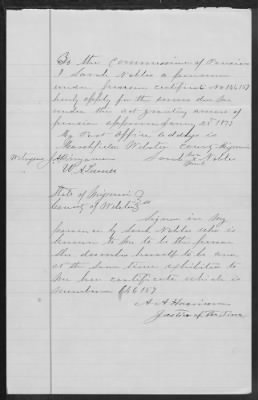 To the Commissioner of Pension
I Sarah Nobles a pensioner
under pension certificate No 146,157
hereby apply for the arrears due me
under the act granting arrears of
pension approved January 25th 1879
My Post Office address is
Marshfield Webster County Missouri
Witnesses Sarah her Nobles
mark
W A
State of Missouri
County of Webster ss
Signed in my
presence by Sarah Nobles who is
known to me to be the person
she describes herself to be and
at the same time exhibited to
me her certificate which is
numbered 146 157
A A Harrison
Justice of the Peace